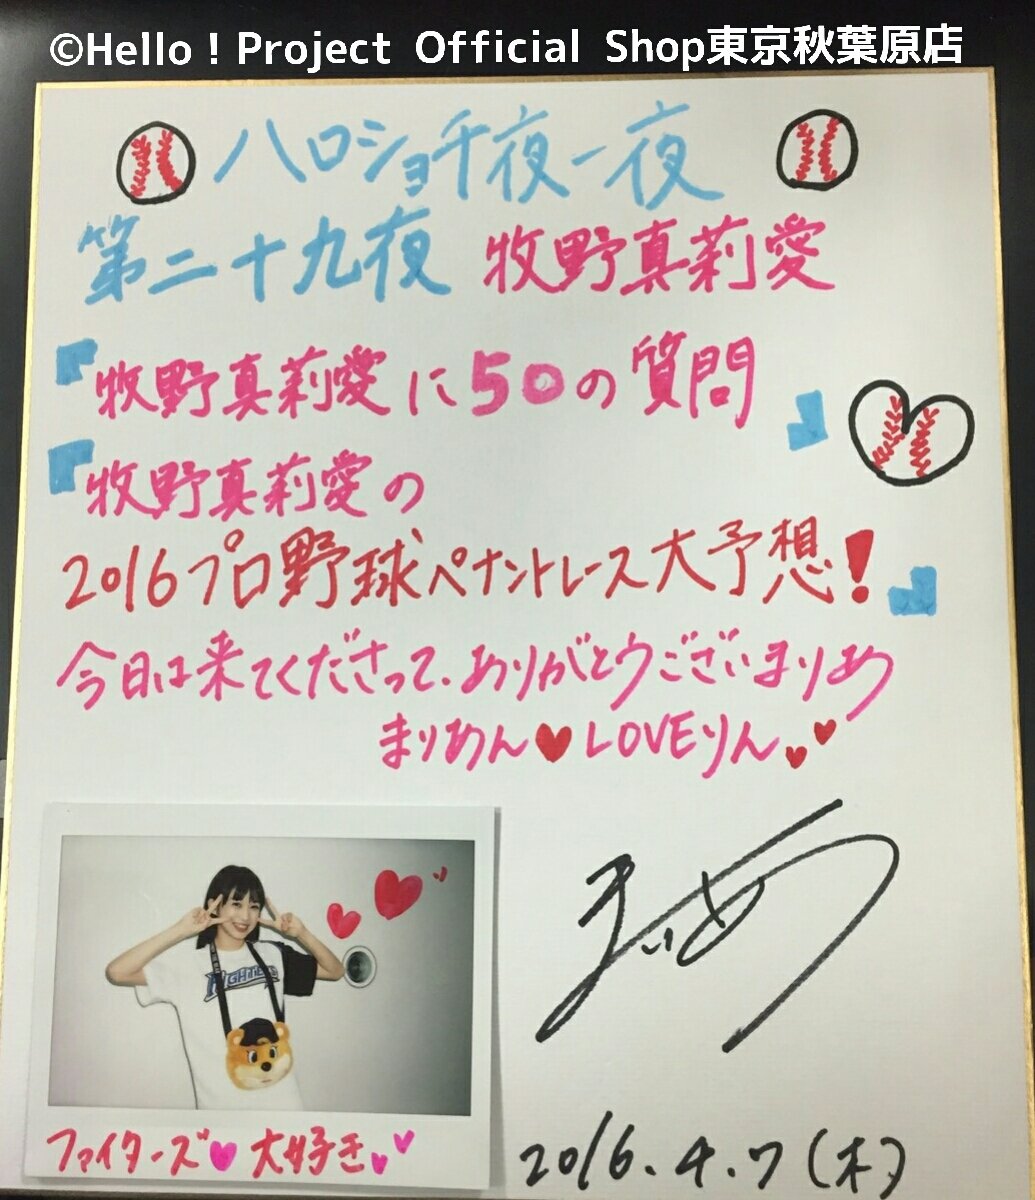 ©Hello！Project Official Shop東京秋葉原店
ハロショ千夜一夜
第二十九夜 牧野真莉愛
『牧野真莉愛に50の質問』
『牧野真莉愛の
2016プロ野球ペナントレース大予想!』
今日は来てくださって、ありがとうございまりあ
まりあん♥LOVEりん♥♥
FIGHTERS
まりあ
ファイターズ♥大好き♥♥
2016.4.7(木)